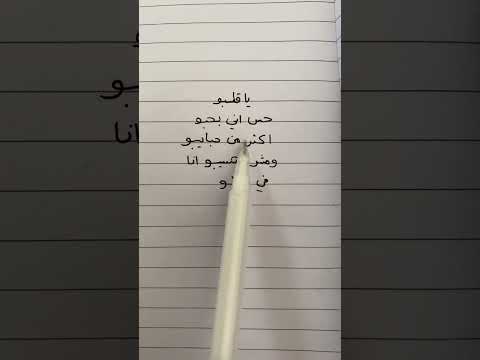 يا قلبو
حس اني بحبو
اكتر من حبايبو
ومش انا
في